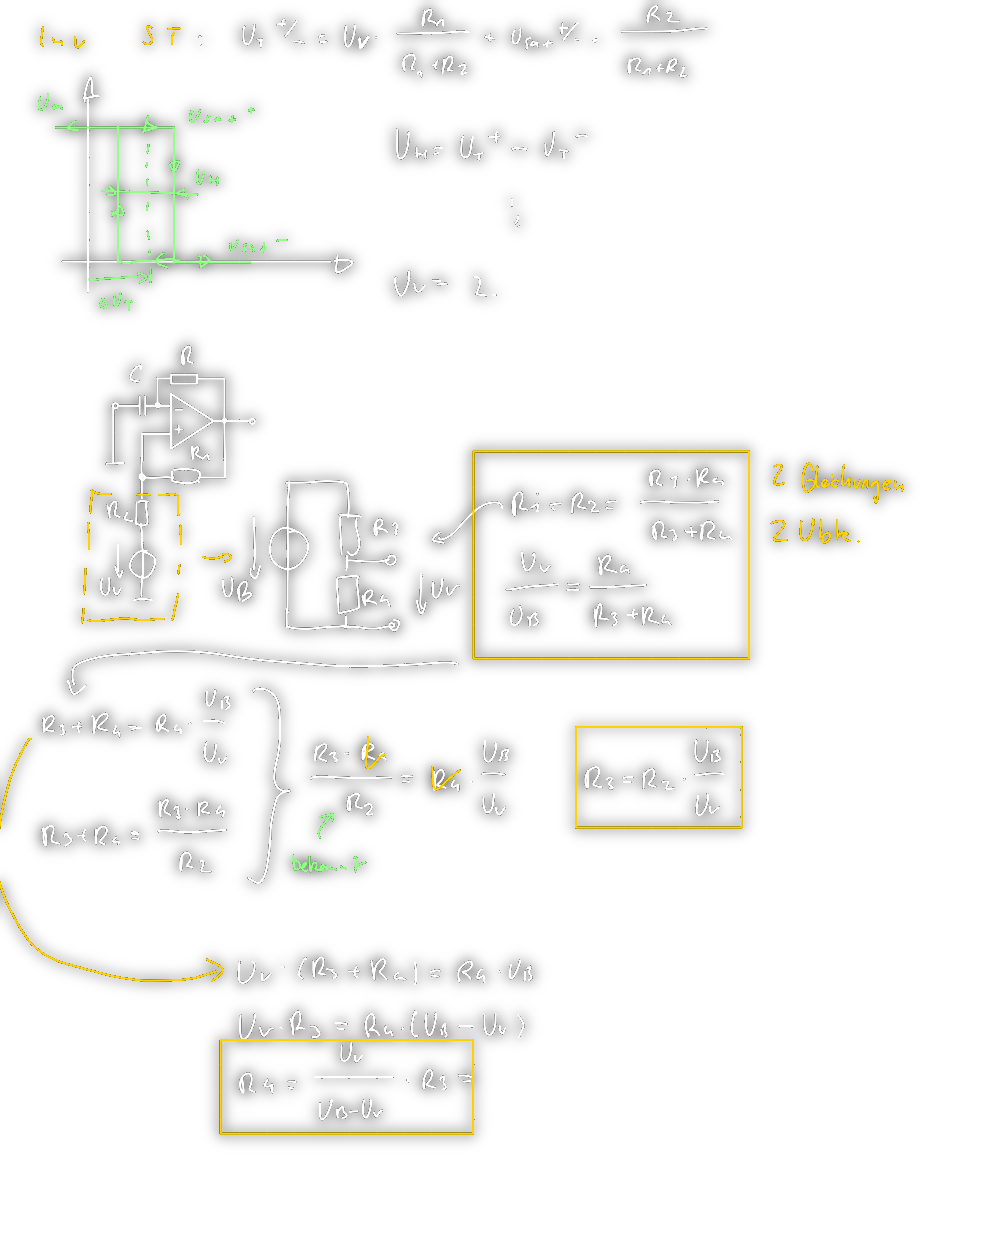 Inv ST: U_T^+/- = U_V · R1/(R1+R2) + U_sat^+/- · R2/(R1+R2)
Ua
Usat+
U_H
Usat-
U_H = U_T^+ - U_T^-
⋮
U_V = 2.
R
C
-
+
R1
R2
U_V
U_B
R3
R4
U_V
Ri = R2 = R3·R4/(R3+R4)
U_V/U_B = R4/(R3+R4)
2 Gleichungen
2 Ubk.
R3+R4 = R4 · U_B/U_V
R3+R4 = R3·R4/R2
R3·R4/R2 = R4 · U_B/U_V
R3 = R2 · U_B/U_V
U_V · (R3+R4) = R4 · U_B
U_V · R3 = R4 · (U_B - U_V)
R4 = U_V/(U_B-U_V) · R3 =